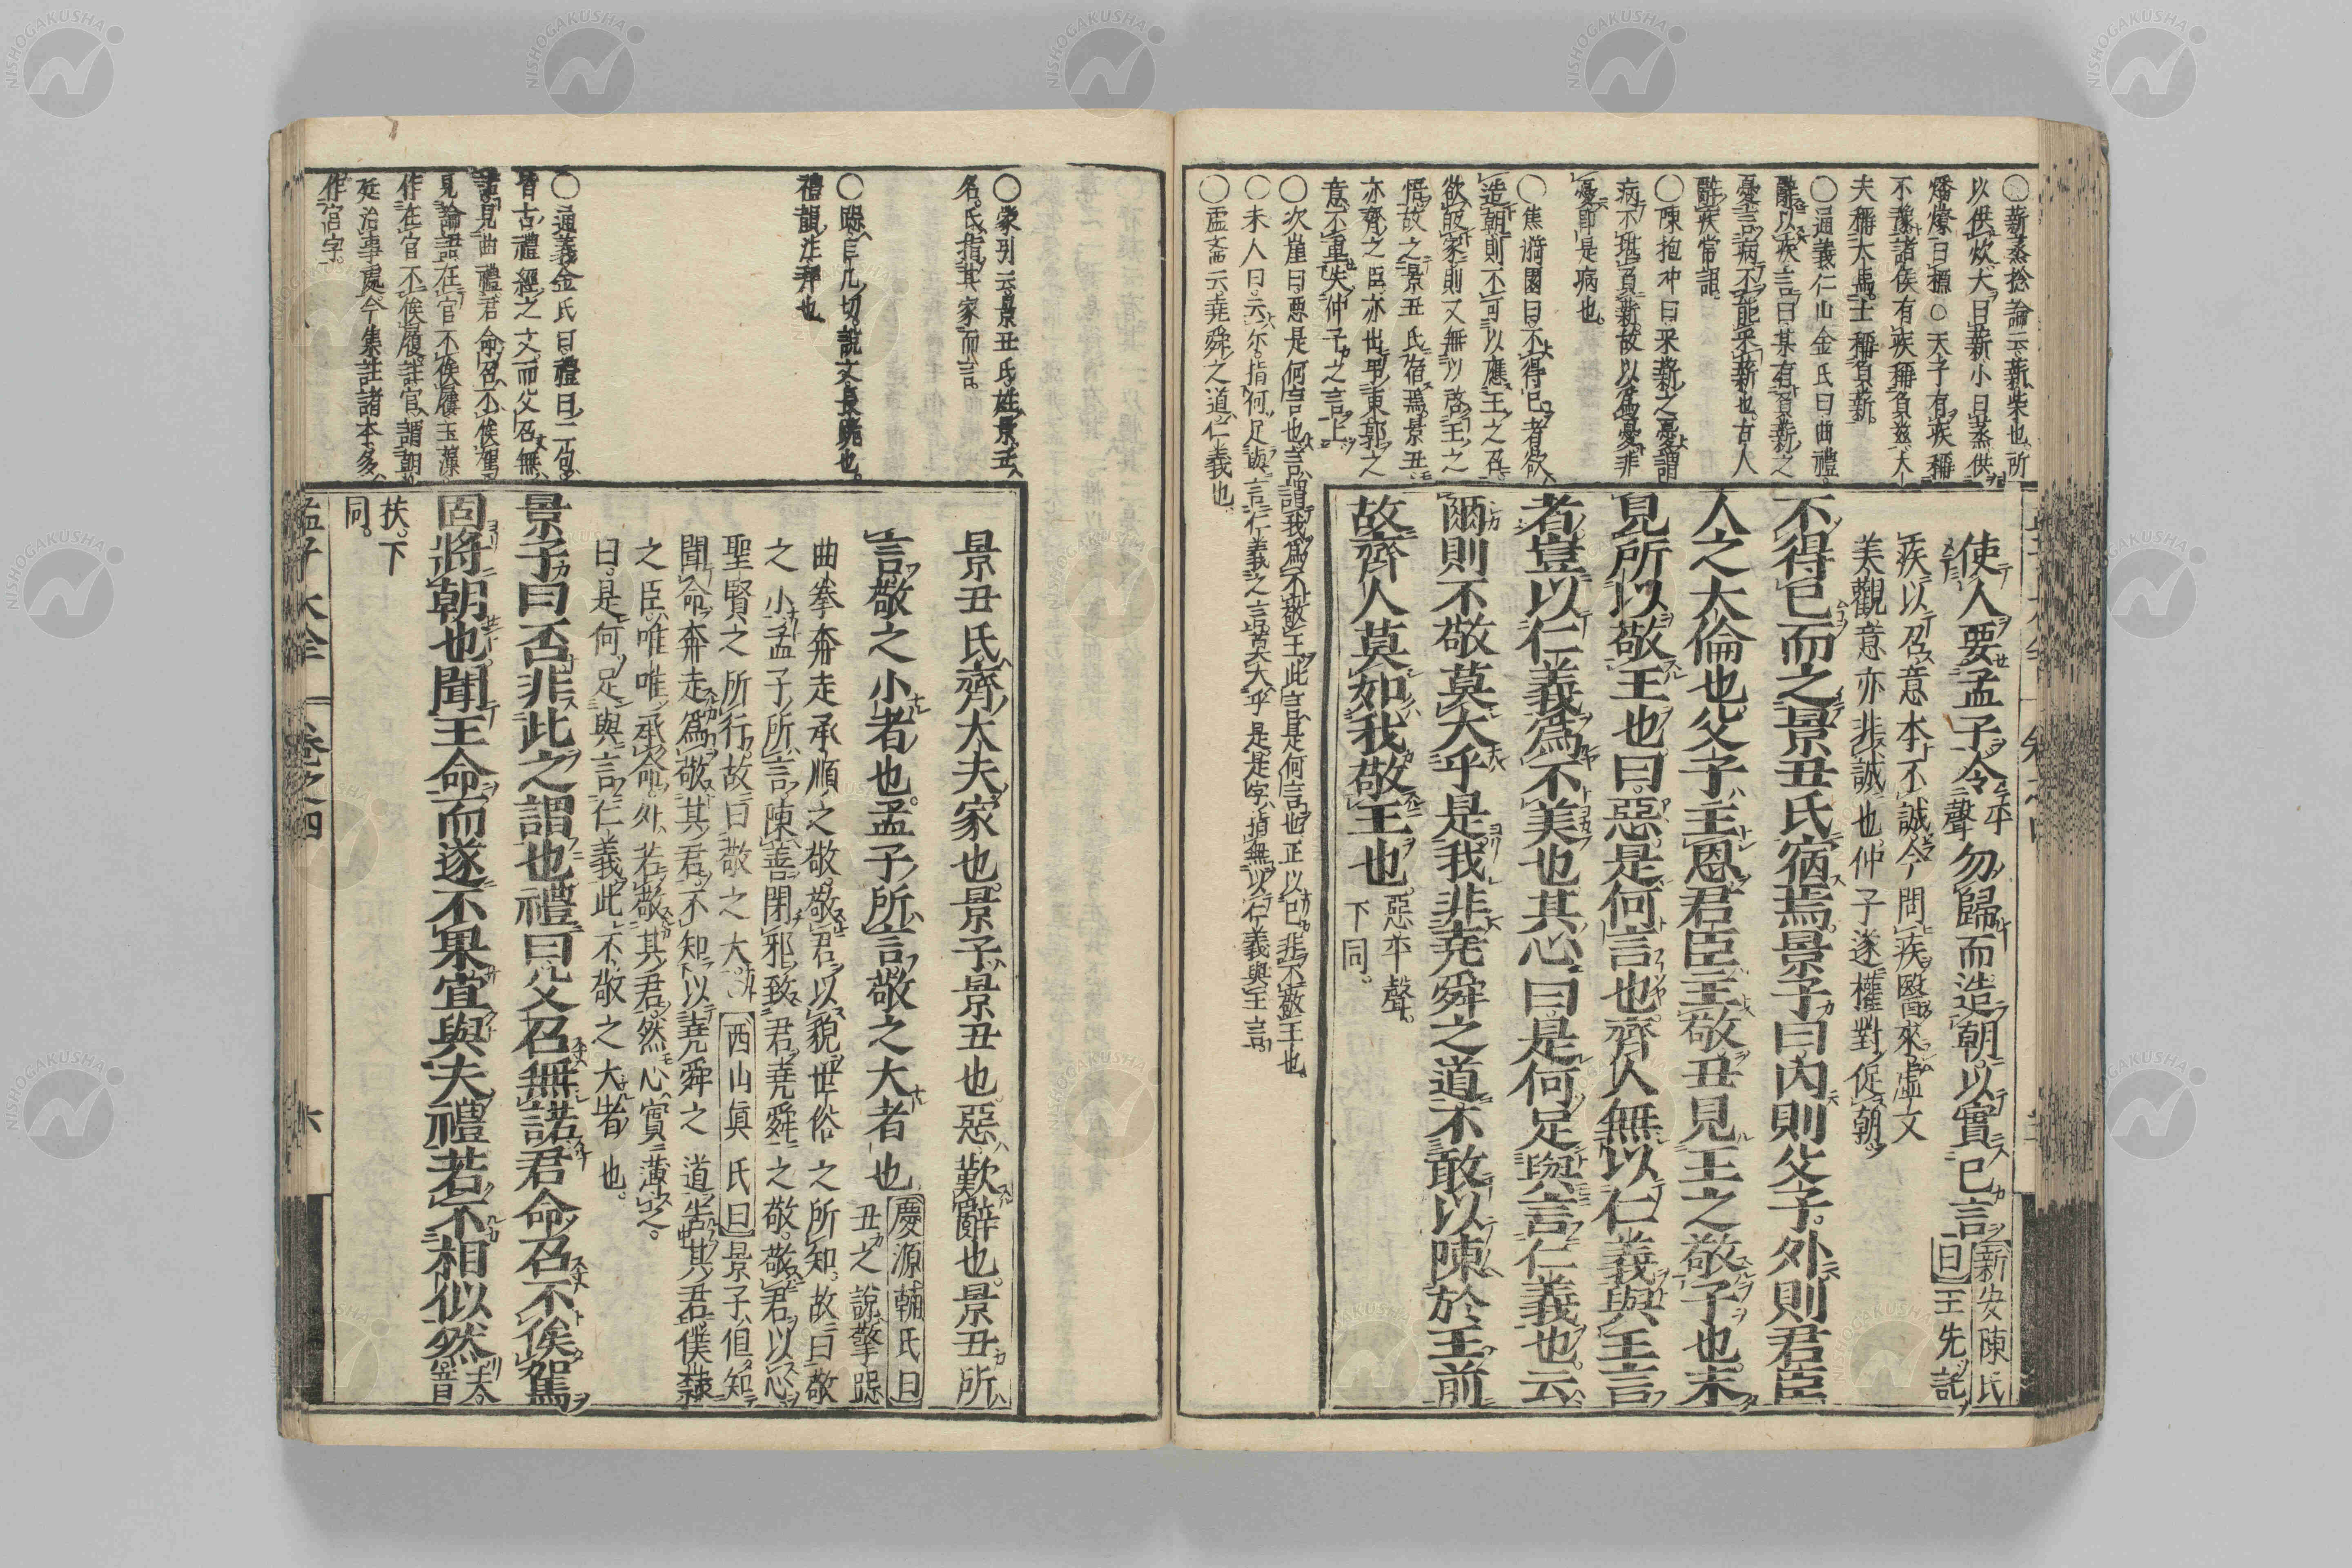 ○薪蒸捴論云薪柴也所
以供炊大曰薪小曰蒸供
燔燎曰標○天子有疾稱
不豫諸侯有疾稱負茲大
夫稱犬馬士稱負薪
○通義仁山金氏曰曲禮
辭以疾言曰某有負薪之
憂言病不能采薪也古人
辭疾常詞
○陳抱冲曰采薪之憂謂
病不堪負薪故以爲憂非
憂即是病也
○焦漪園曰不得已者欲
造朝則不可以應王之召
欲皈家則又無以啓王之
悟故之景丑氏宿焉景丑
亦齊之臣亦出弔東郭之
意不重失仲子之言上
○次崖曰惡是何言也言謂我爲不敬王此言是何言也正以已非不敬王也
○未人曰云尓指何足與言仁義之言莫大乎是是字指無以仁義與王言
○盂菴云堯舜之道仁義也
使人要孟子令平聲勿歸而造朝以實己言新安陳氏曰王先託
疾以召意本不誠今問疾醫來虛文
美觀意亦非誠也仲子遂權對促朝
不得已而之景丑氏宿焉景子曰內則父子外則君臣
人之大倫也父子主恩君臣主敬丑見王之敬子也未
見所以敬王也曰惡是何言也齊人無以仁義與王言
者豈以仁義爲不美也其心曰是何足與言仁義也云
爾則不敬莫大乎是我非堯舜之道不敢以陳於王前
故齊人莫如我敬王也惡平聲下同
○蒙引云景丑氏姓景丑
名氏指其家而言
○跽巨几切說文長跪也
禮韻注拜也
○通義金氏曰禮曰二句
皆古禮經之文而父召無
諾見曲禮君命召不俟駕
見論語在官不俟屨玉藻
作在官不俟屨註官謂朝
廷治事處今集註諸本多
作宮字
景丑氏齊大夫家也景子景丑也惡歎辭也景丑所
言敬之小者也孟子所言敬之大者也慶源輔氏曰丑之說擎跽
曲拳奔走承順之敬敬君以貌世俗之所知故曰敬
之小孟子所言陳善閉邪致君堯舜之敬敬君以心
聖賢之所行故曰敬之大西山眞氏曰景子但知
聞命奔走爲敬其君不知以堯舜之道告其君僕隸
之臣唯唯承命外若敬其君然心實薄之
曰是何足與言仁義此不敬之大者也
景子曰否非此之謂也禮曰父召無諾君命召不俟駕
固將朝也聞王命而遂不果宜與夫禮若不相似然夫音
扶下
同
孟子大全 卷之四 六